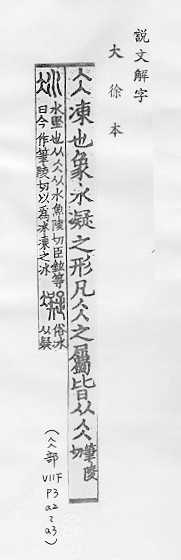 說文解字
大徐本
仌凍也象水凝之形凡仌之屬皆从仌筆陵切
冰水堅也从仌从水魚陵切臣鉉等曰今作筆陵切以爲冰凍之冰凝俗冰从疑
(仌部 VII下 P3 a2~a3)